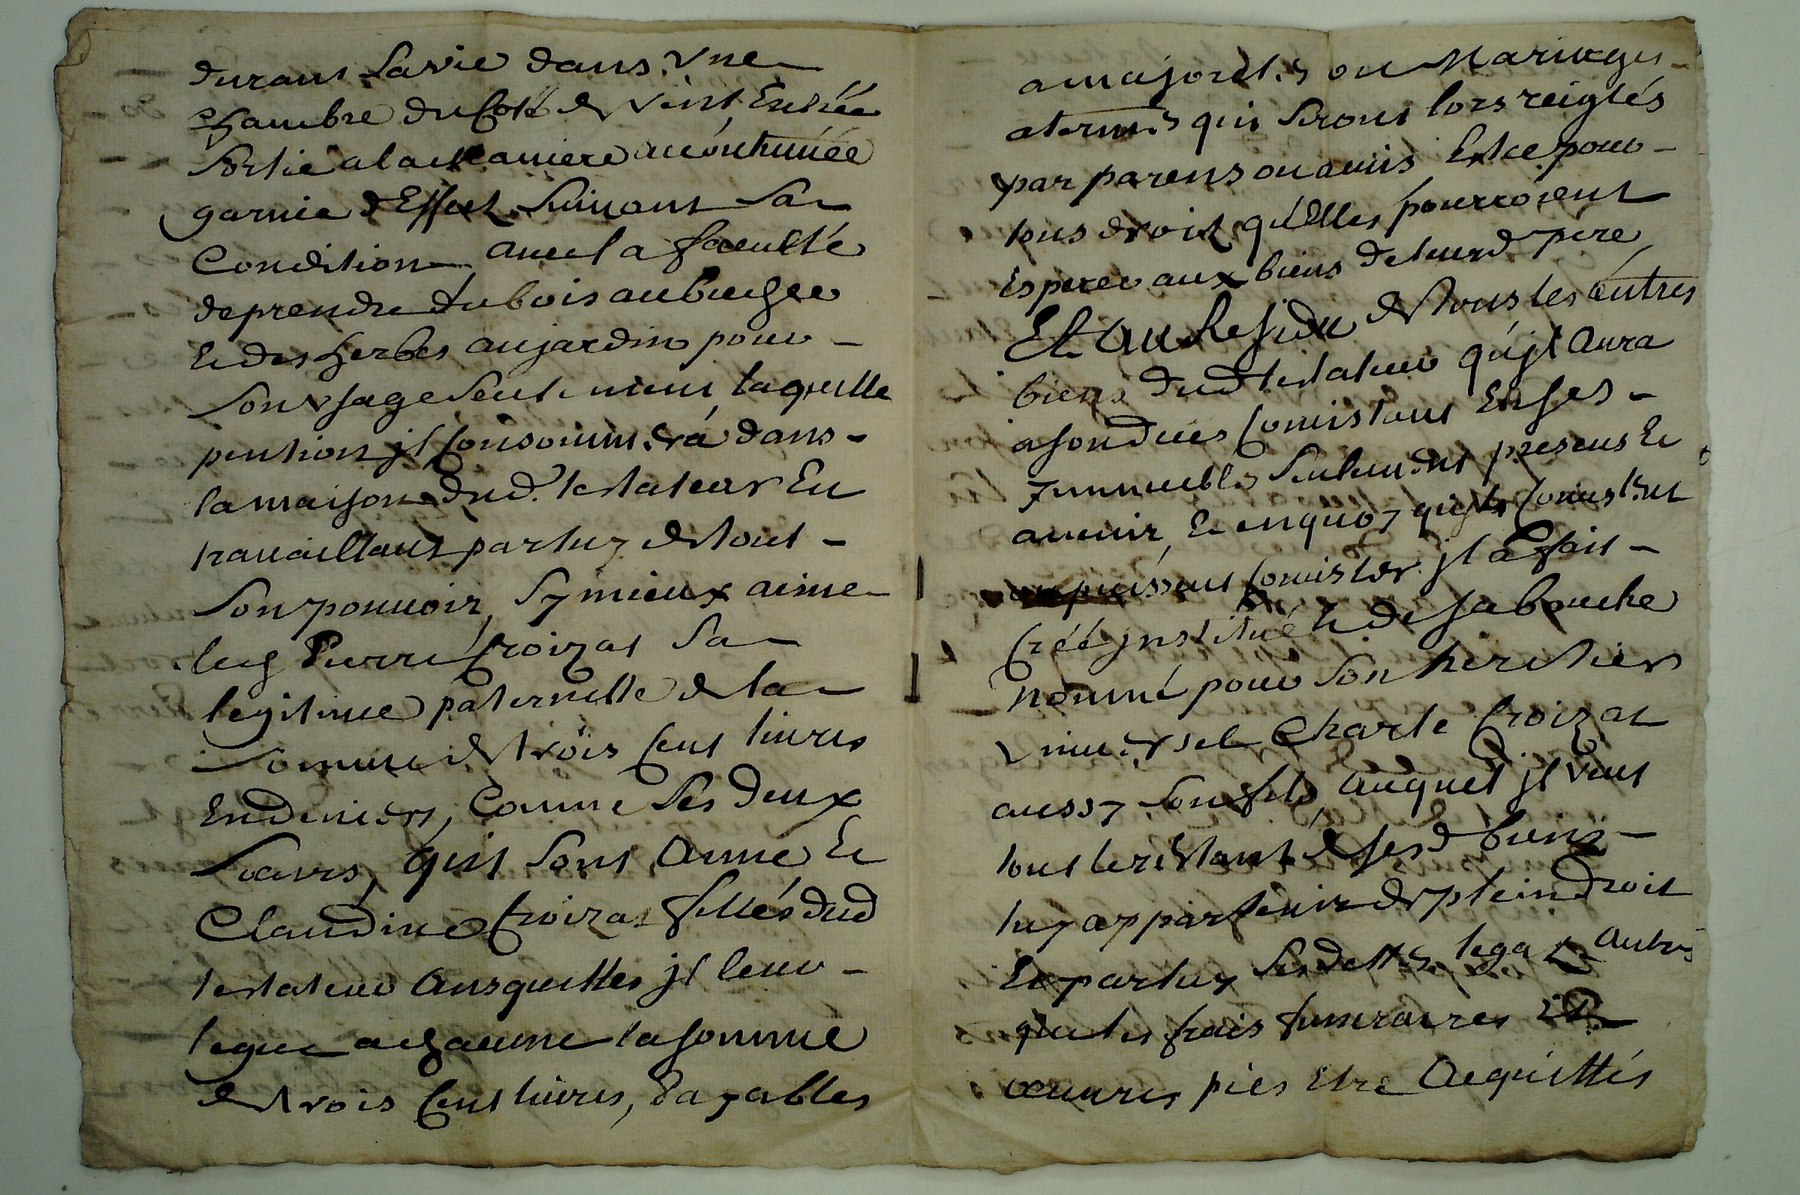 durant sa vie dans une
chambre du Coté de vent Entrée
Sortie a la maniere accoutumée
garnie d'Effect suivant sa
Condition avec la faculté
de prendre du bois au bucher
Et des herbes au jardin pour
son usage seulement laquelle
pention jl consommera dans
la maison dud. testateur En
travaillant par luy de tout
son pouvoir, sy mieux aime
led Pierre Croizat sa
legitime paternelle de la
somme de trois cent livres
En deniers, comme ses deux
soeurs, qui sont Anne Et
Claudine Croizat filles dud
testateur Ausquelles jl leur
legue a chacune la somme
de trois cent livres, payables
a majorités ou Mariages
a termes qui seront lors reiglés
par parens ou amis Et ce pour
tous droit qu'Elles pourroient
Esperer aux biens de leurd pere
Et Au Residu de tous les autres
biens dud testateur qu'jl Aura
Consistant En ses
jmmeubles seulement presens Et
avenir, Et en quoy qu'jls consistent
ou puissent consister jl a fait
Créé jnstitué Et de sa bouche
nommé pour son heritier
universel Charle Croizat
aussy son fils, Auquel jl veut
tout le restant de sesd biens
luy appartenir de plein droit
Et par luy ses dettes legat Et Autres
que les frais funeraires Et
oeuvres pies Etre Acquittés